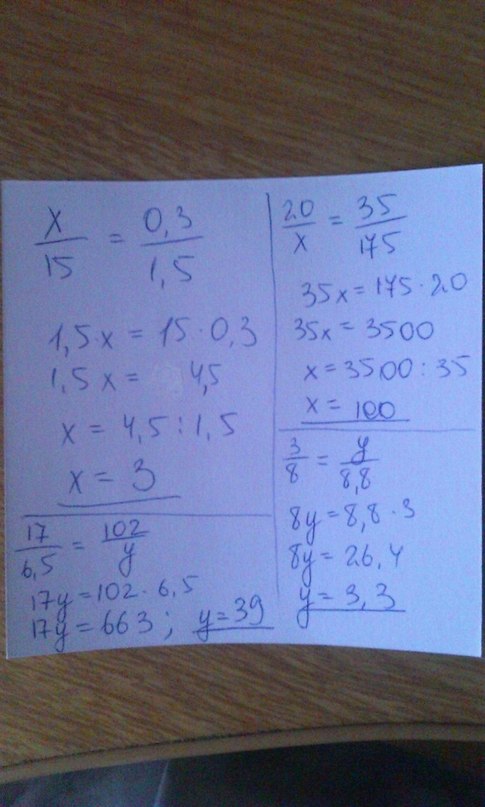 x/15 = 0,3/1,5
1,5x = 15·0,3
1,5x = 4,5
x = 4,5:1,5
x = 3
20/x = 35/175
35x = 175·20
35x = 3500
x = 3500:35
x = 100
17/6,5 = 102/y
17y = 102·6,5
17y = 663; y = 39
3/8 = y/8,8
8y = 8,8·3
8y = 26,4
y = 3,3